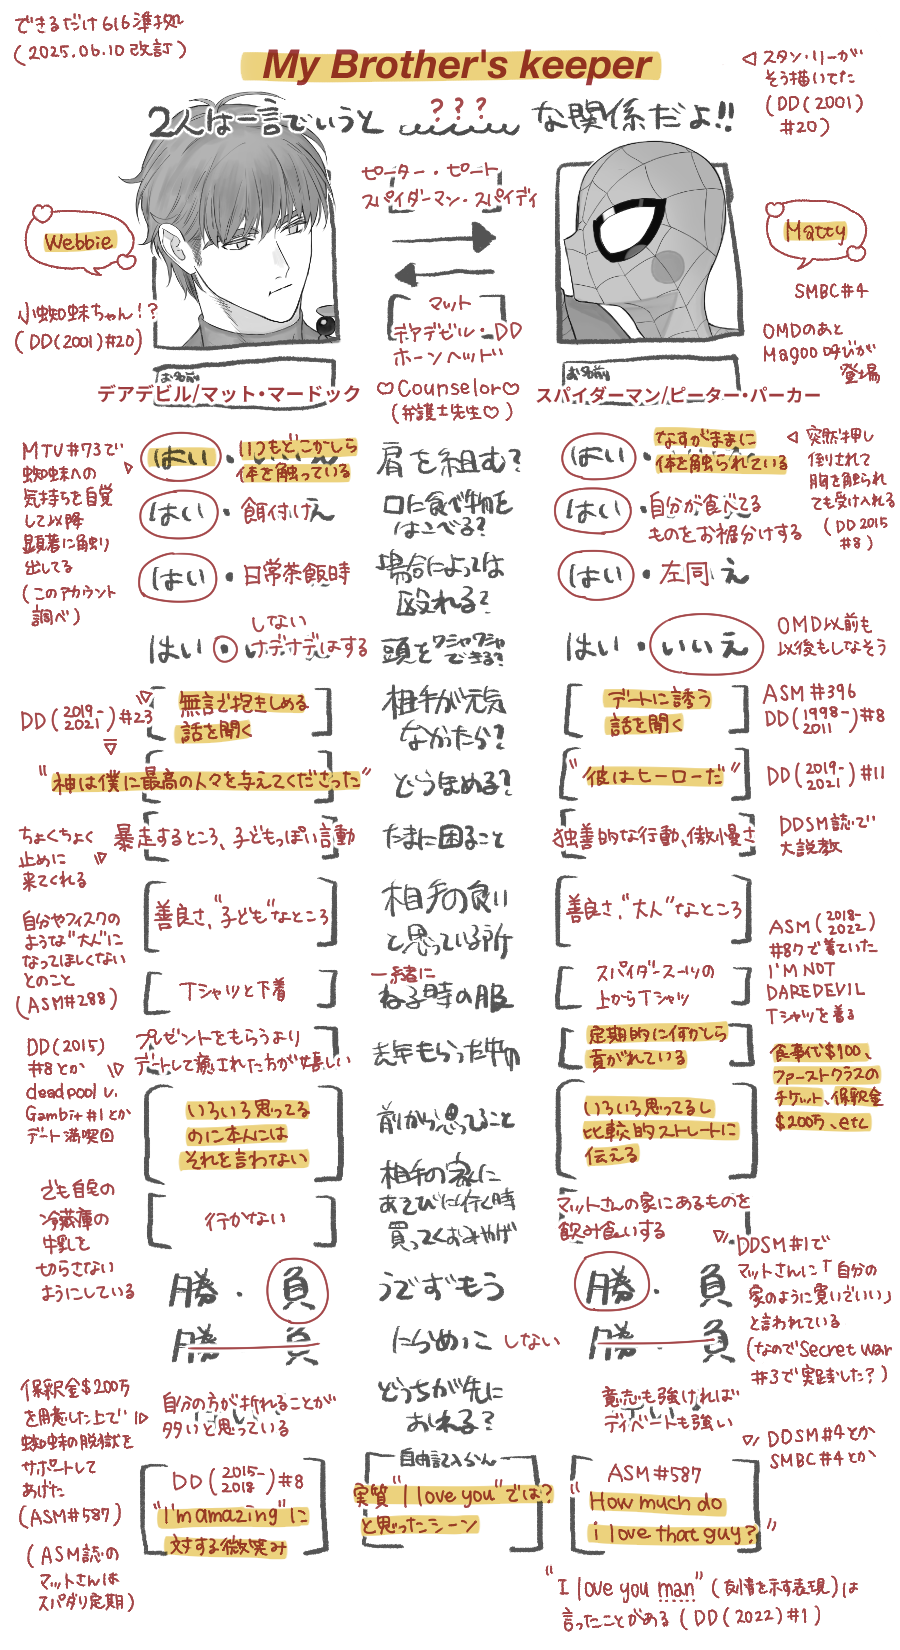 できるだけ616準拠
(2025.06.10改訂)
My Brother's keeper
2人は一言でいうと ??? な関係だよ!!
◁ スタン・リーが
そう描いてた
(DD(2001)
#20)
Webbie
小蜘蛛ちゃん!?
(DD(2001)#20)
ピーター・ピート
スパイダーマン・スパイディ
マット
デアデビル・DD
ホーンヘッド
♡Counselor♡
(弁護士先生♡)
Matty
SMBC#4
OMDのあと
Magoo呼びが
登場
お名前
デアデビル/マット・マードック
お名前
スパイダーマン/ピーター・パーカー
MTU#73で
蜘蛛への
気持ちを自覚
して以降
顕著に触り
出してる
(このアカウント
調べ)
はい・いつもどこかしら
体を触っている
肩を組む?
はい・なすがままに
体を触られている
◁ 突然押し
倒されて
胸を触られ
ても受け入れる
(DD2015
#8)
はい・餌付けえ
口に食べ物を
はこべる?
はい・自分が食べてる
ものをお裾分けする
はい・日常茶飯時
場合によっては
殴れる?
はい・左同え
はい・しない
ナデナデはする
頭をワシャワシャ
できる?
はい・いいえ
OMD以前も
以後もしなそう
DD(2019-2021)#23
無言で抱きしめる
話を聞く
相手が元気
なかったら?
デートに誘う
話を聞く
ASM#396
DD(1998-2011)#8
"神は僕に最高の人々を与えてくださった"
どうほめる?
"彼はヒーローだ"
DD(2019-2021)#11
ちょくちょく
止めに
来てくれる
暴走するところ、子どもっぽい言動
たまに困ること
独善的な行動、傲慢さ
DDSM誌で
大説教
自分やフィスクの
ような"大人"に
なってほしくない
とのこと
(ASM#288)
善良さ、"子ども"なところ
相手の良い
と思っている所
善良さ、"大人"なところ
ASM(2018-2022)
#87で着ていた
I'M NOT
DAREDEVIL
Tシャツを着る
Tシャツと下着
一緒に
ねる時の服
スパイダースーツの
上からTシャツ
DD(2015)
#8とか
deadpool v.
Gambit#1とか
デート満喫回
プレゼントをもらうより
デートして癒された方が嬉しい
去年もらった物
定期的に何かしら
貢がれている
食事代$100、
ファーストクラスの
チケット、保釈金
$200万、etc
いろいろ思ってる
のに本人には
それを言わない
前から思ってること
いろいろ思ってるし
比較的ストレートに
伝える
でも自宅の
冷蔵庫の
牛乳を
切らさない
ようにしている
行かない
相手の家に
あそびに行く時
買ってくおみやげ
マットさんの家にあるものを
飲み食いする
DDSM#1で
マットさんに「自分の
家のように寛いでいい」
と言われている
(なのでSecret War
#3で実践した?)
勝・負
うでずもう
勝・負
勝 負
にらめっこ しない
勝 負
保釈金$200万
を用意した上で
蜘蛛の脱獄を
サポートして
あげた
(ASM#587)
(ASM誌の
マットさんは
スパダリ定期)
自分の方が折れることが
多いと思っている
どっちが先に
おれる?
意志も強ければ
ディベートも強い
DDSM#4とか
SMBC#4とか
DD(2015-2018)#8
"I'm amazing"に
対する微笑み
自由記入らん
実質"I love you"では?
と思ったシーン
ASM#587
"How much do
i love that guy?"
"I love you man"(友情を示す表現)は
言ったことがある(DD(2022)#1)